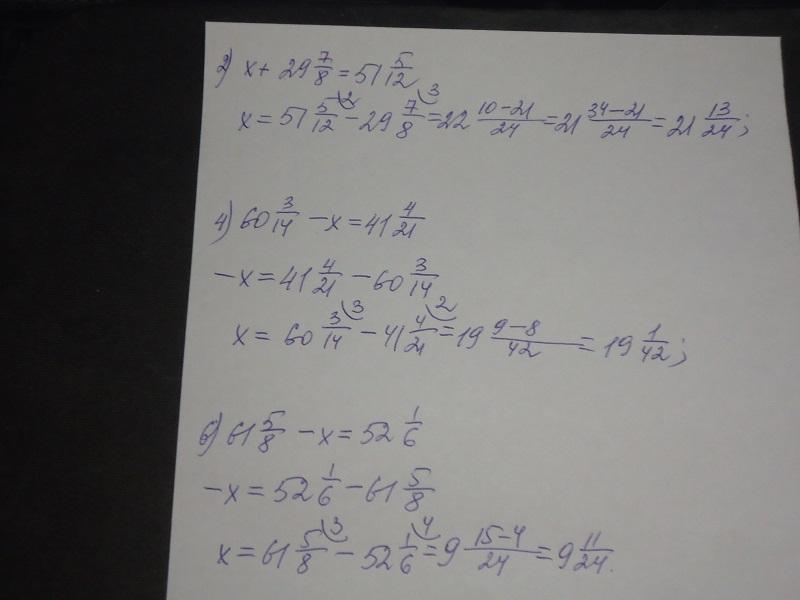 2) x + 29 7/8 = 51 5/12
x = 51 5/12 (2 − 29 7/8 (3 = 22 10−21/24 = 21 34−21/24 = 21 13/24;
4) 60 3/14 − x = 41 4/21
−x = 41 4/21 − 60 3/14
x = 60 3/14 (3 − 41 4/21 (2 = 19 9−8/42 = 19 1/42;
6) 61 5/8 − x = 52 1/6
−x = 52 1/6 − 61 5/8
x = 61 5/8 (3 − 52 1/6 (4 = 9 15−4/24 = 9 11/24.